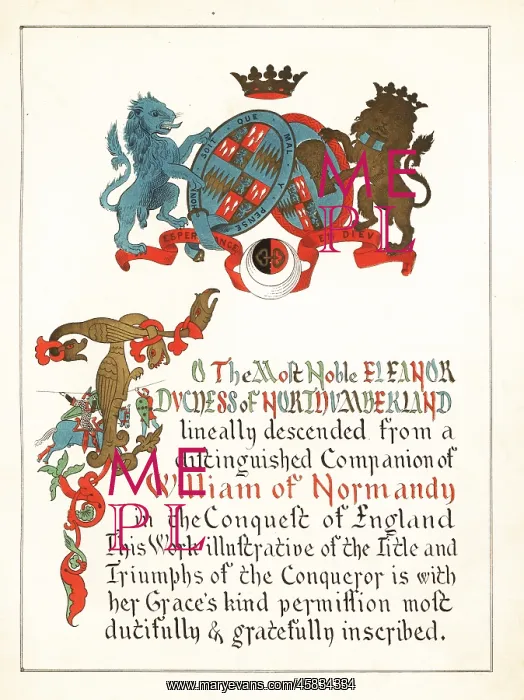 HONI SOIT QUE MAL Y PENSE
ESPERANCE EN DIEU
ME
PL
TO The Most Noble ELEANOR
DUCHESS of NORTHUMBERLAND
lineally descended from a
distinguished Companion of
William of Normandy
in the Conquest of England
This Work illustrative of the Title and
Triumphs of the Conqueror is with
her Grace's kind permission most
dutifully & gratefully inscribed.
ME
PL
www.maryevans.com/45834384